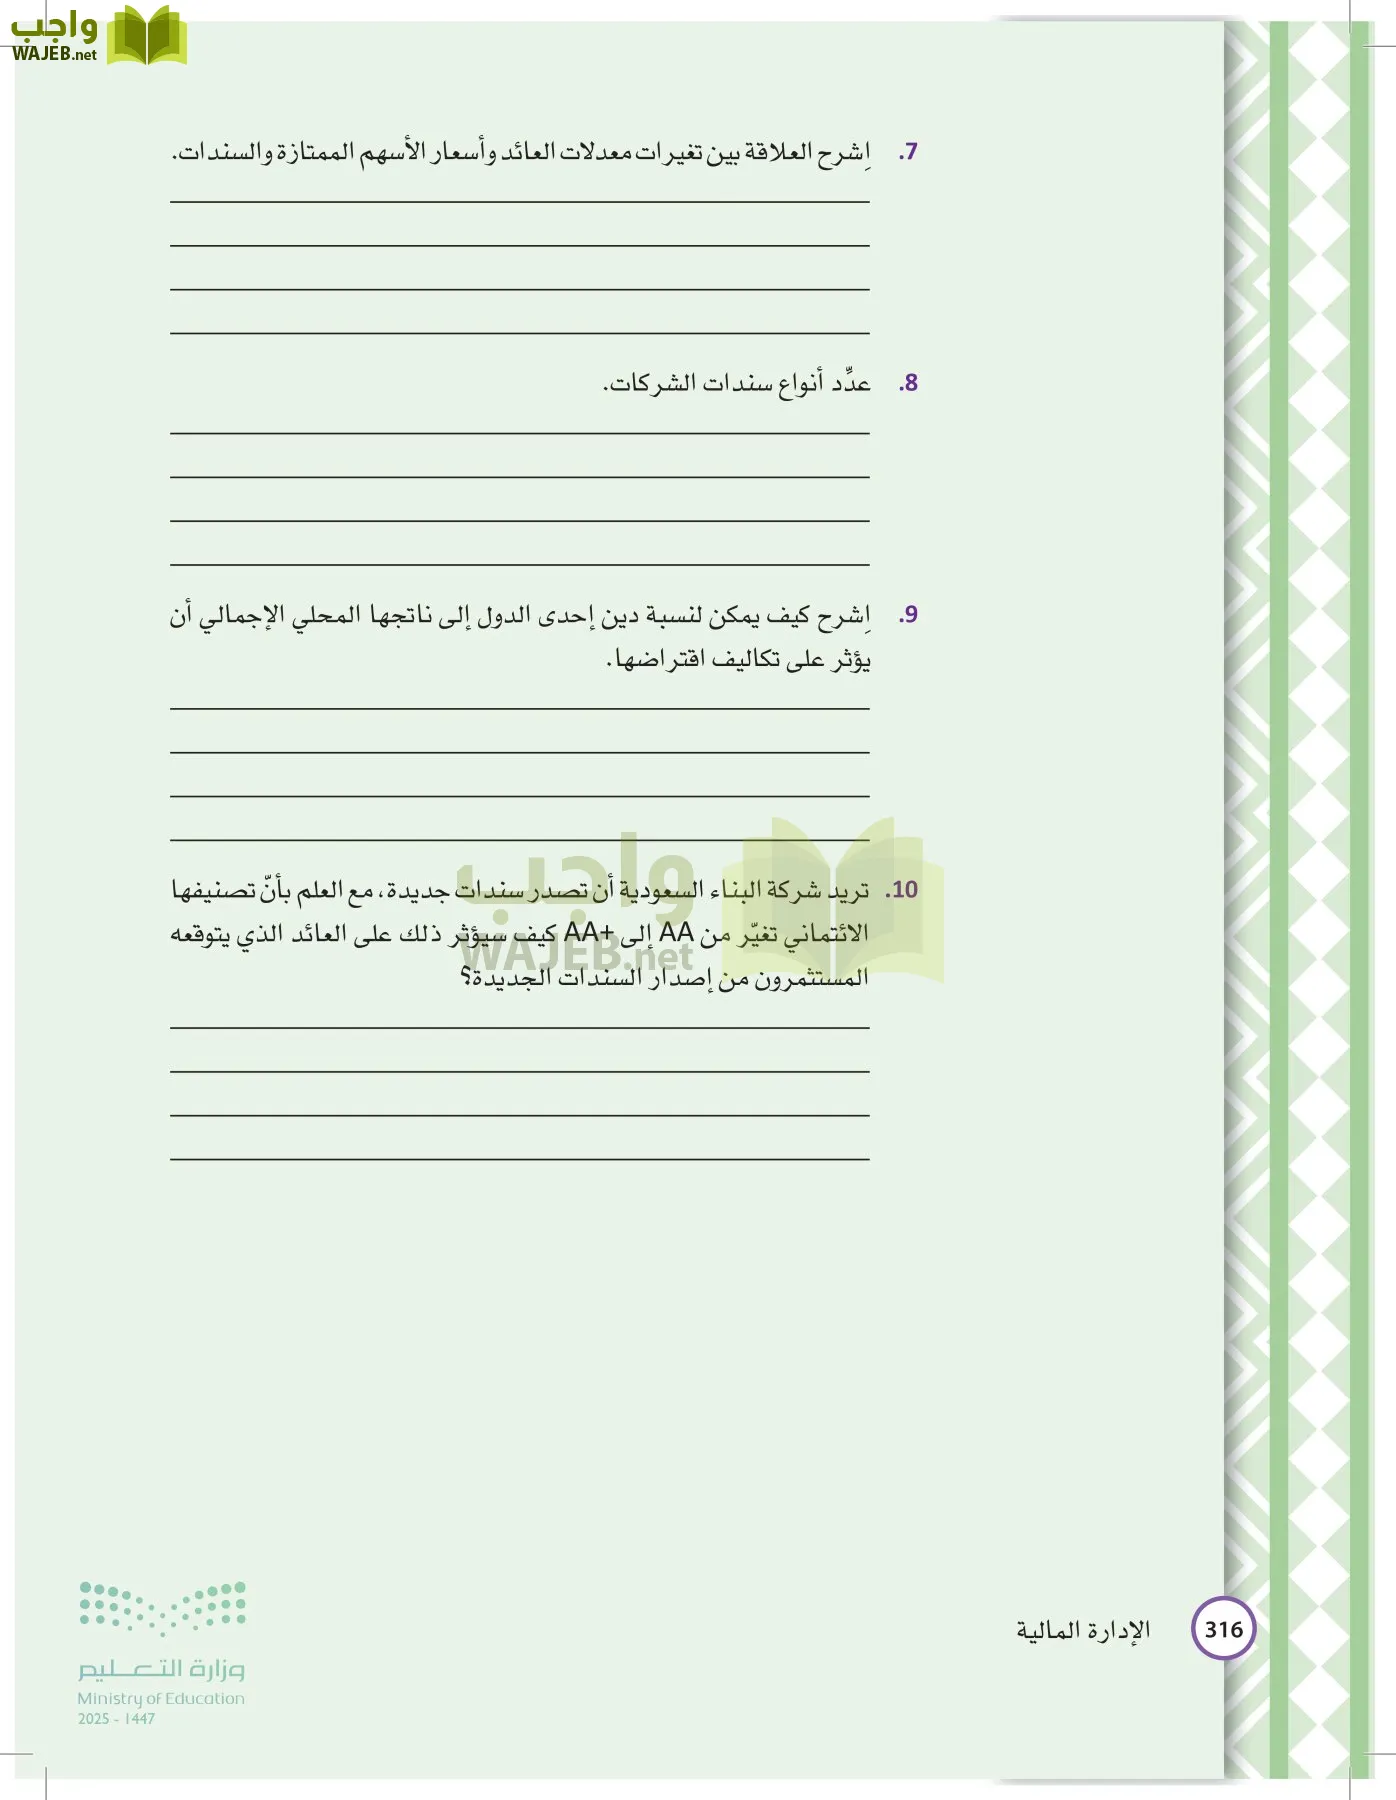 واجب
WAJEB.net
7. اِشرح العلاقة بين تغيرات معدلات العائد وأسعار الأسهم الممتازة والسندات.
8. عدِّد أنواع سندات الشركات.
9. اِشرح كيف يمكن لنسبة دين إحدى الدول إلى ناتجها المحلي الإجمالي أن
يؤثر على تكاليف اقتراضها.
واجب
WAJEB.net
10. تريد شركة البناء السعودية أن تصدر سندات جديدة، مع العلم بأنّ تصنيفها
الائتماني تغيّر من AA إلى +AA كيف سيؤثر ذلك على العائد الذي يتوقعه
المستثمرون من إصدار السندات الجديدة؟
316
الإدارة المالية
وزارة التعليم
Ministry of Education
2025 - 1447